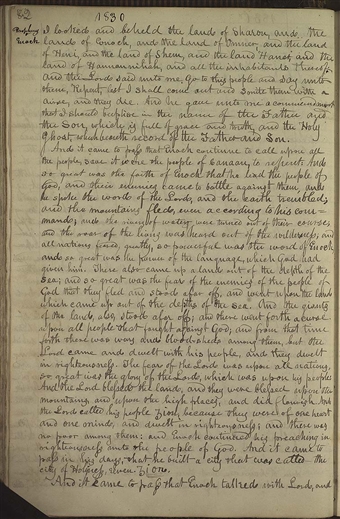 82 1830
Prophecy of Enoch
I looked, and beheld the land of Sharon, and the
land of Enoch, and the land of Omner, and the land
of Heni, and the land of Shem, and the land Haner, and the
land of Hanannihah, and all the inhabitants thereof;
and the Lord said unto me, Go to this people and say unto
them, Repent, lest I shall come out and smite them with a
curse, and they die. And he gave unto me a commandment
that I should baptise in the name of the Father and
the Son, which is full of grace and truth, and the Holy
Ghost, which beareth record of the Father and Son.
And it came to pass that Enoch continued to call upon all
the people, save it were the people of Canaan, to repent. And
so great was the faith of Enoch that he lead the people of
God, and their enemies came to battle against them, and
he spoke the word of the Lord, and the earth trembled,
and the mountains fled, even according to his com-
mand; and the rivers of water were turned out of their courses
and the roar of the lions was heard out of the wilderness, and
all nations feared greatly, so powerful was the word of Enoch
and so great was the power of the language, which God had
given him. There also came up a land out of the depth of the
sea; and so great was the fear of the enemies of the people of
God that they fled and stood afar off, and went upon the land
which came up out of the depths of the sea. And the giants
of the land, also, stood afar off; and there went forth a curse
upon all people that fought against God; and from that time
forth there was wars and bloodsheds among them; but the
Lord came and dwelt with his people, and they dwelt
in righteousness. The fear of the Lord was upon all nations,
so great was the glory of the Lord, which was upon his people.
And the Lord blessed the land, and they were blessed upon the
mountains, and upon the high places, and did flourish. And
the Lord called his people Zion, because they were of one heart
and one mind, and dwelt in righteousness; and there was
no poor among them; and Enoch continued his preaching in
righteousness unto the people of God. And it came to
pass in his days, that he built a city that was called the
city of Holiness, even Zion.
And it came to pass that Enoch talked with the Lord, and